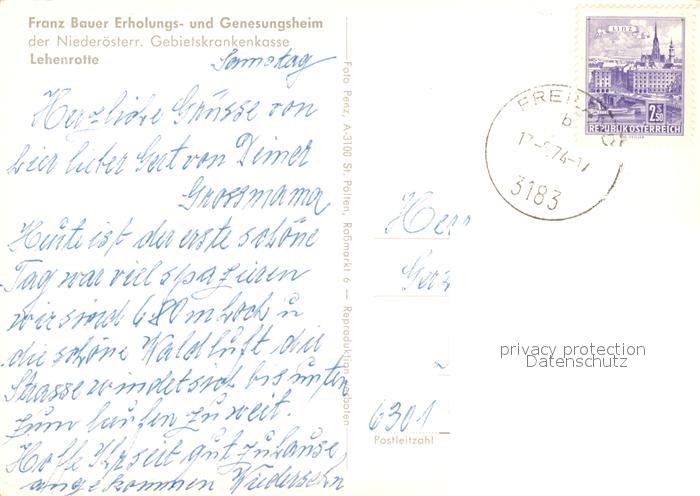 Franz Bauer Erholungs- und Genesungsheim
der Niederösterr. Gebietskrankenkasse
Lehenrotte
Samstag
Herzliche Grüsse von
hier lieber Gert von Deiner
Grossmama
Heute ist der erste schöne
Tag war viel spazieren
wir sind 680 m hoch u
die schöne Waldluft die
Strasse windet sich bis unten
zum laufen zu weit.
Hoffe Ihr seit gut zuhause
angekommen Wiedersehn
Foto Penz, A-3100 St. Pölten, Roßmarkt 6 — Reproduktion verboten
LINZ
2.50
REPUBLIK ÖSTERREICH
FREI
b
74-17
3183
Her
Ger
6301
Postleitzahl
privacy protection
Datenschutz